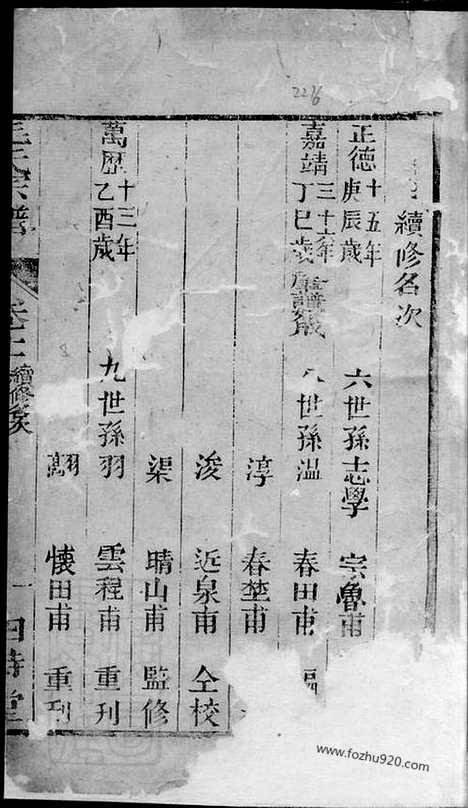 2216
續修名次
正德十五年庚辰歲 六世孫志學 宗魯甫
嘉靖三十六年丁巳歲 八世孫溫 春田甫 編
淳 春埜甫
浚 近泉甫 仝校
渠 晴山甫 監修
萬歷十三年乙酉歲 九世孫羽 雲程甫 重刊
翱 懷田甫 重刊
宗譜 卷二 續修名次 一 四時堂
www.fozhu920.com